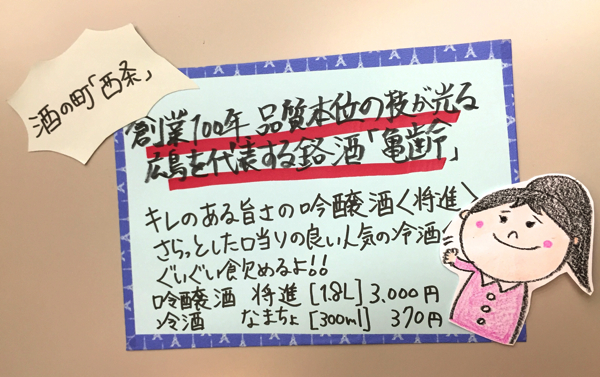 酒の町「西条」
創業100年 品質本位の技が光る
広島を代表する銘酒「亀齢」
キレのある旨さの吟醸酒＜将進＞
さらっとした口当りの良い人気の冷酒
ぐいぐい飲めるよ!!
吟醸酒 将進 [1.8L] 3,000円
冷酒 なまちょ [300ml] 370円